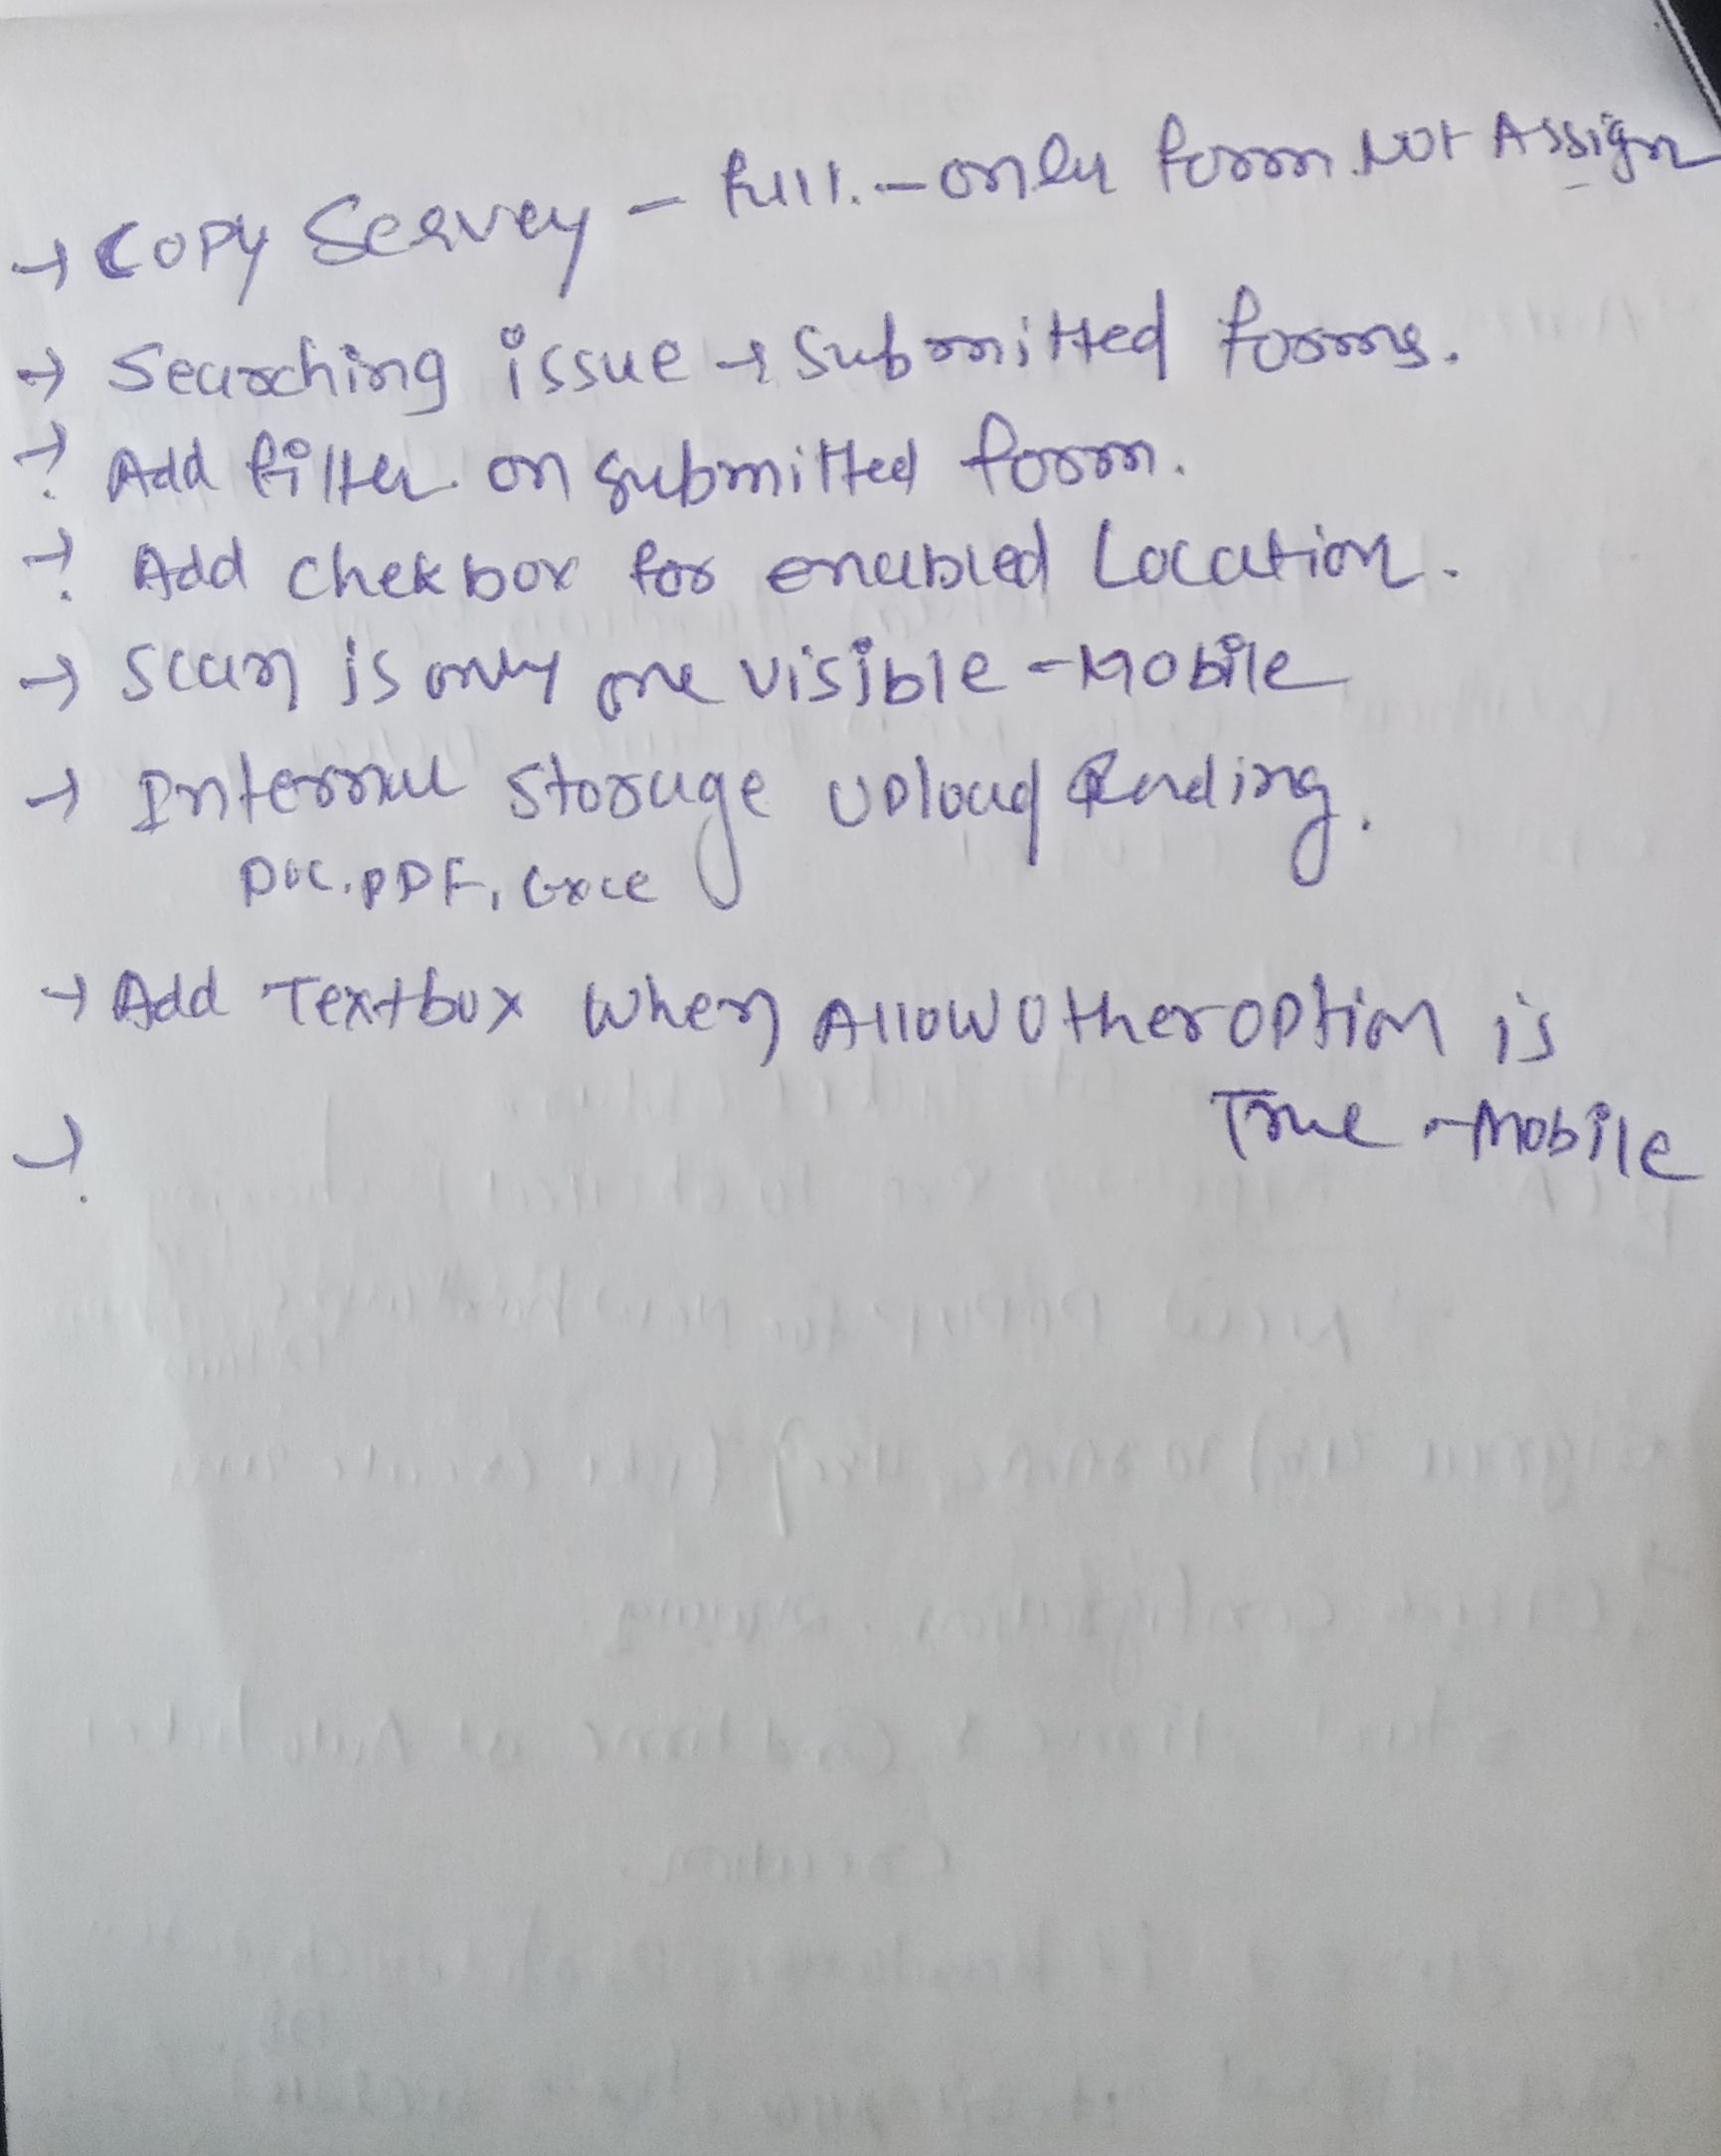 → Copy Servey - full. - only form Not Assign
→ Searching issue → Submitted forms.
→ Add filter on submitted form.
→ Add Chekbox for enabled Location.
→ Scan is only one visible - Mobile
→ Internal Storage Upload Pending.
Doc, PDF, Exce
→ Add Textbox When AllowOtherOption is
True - Mobile
→